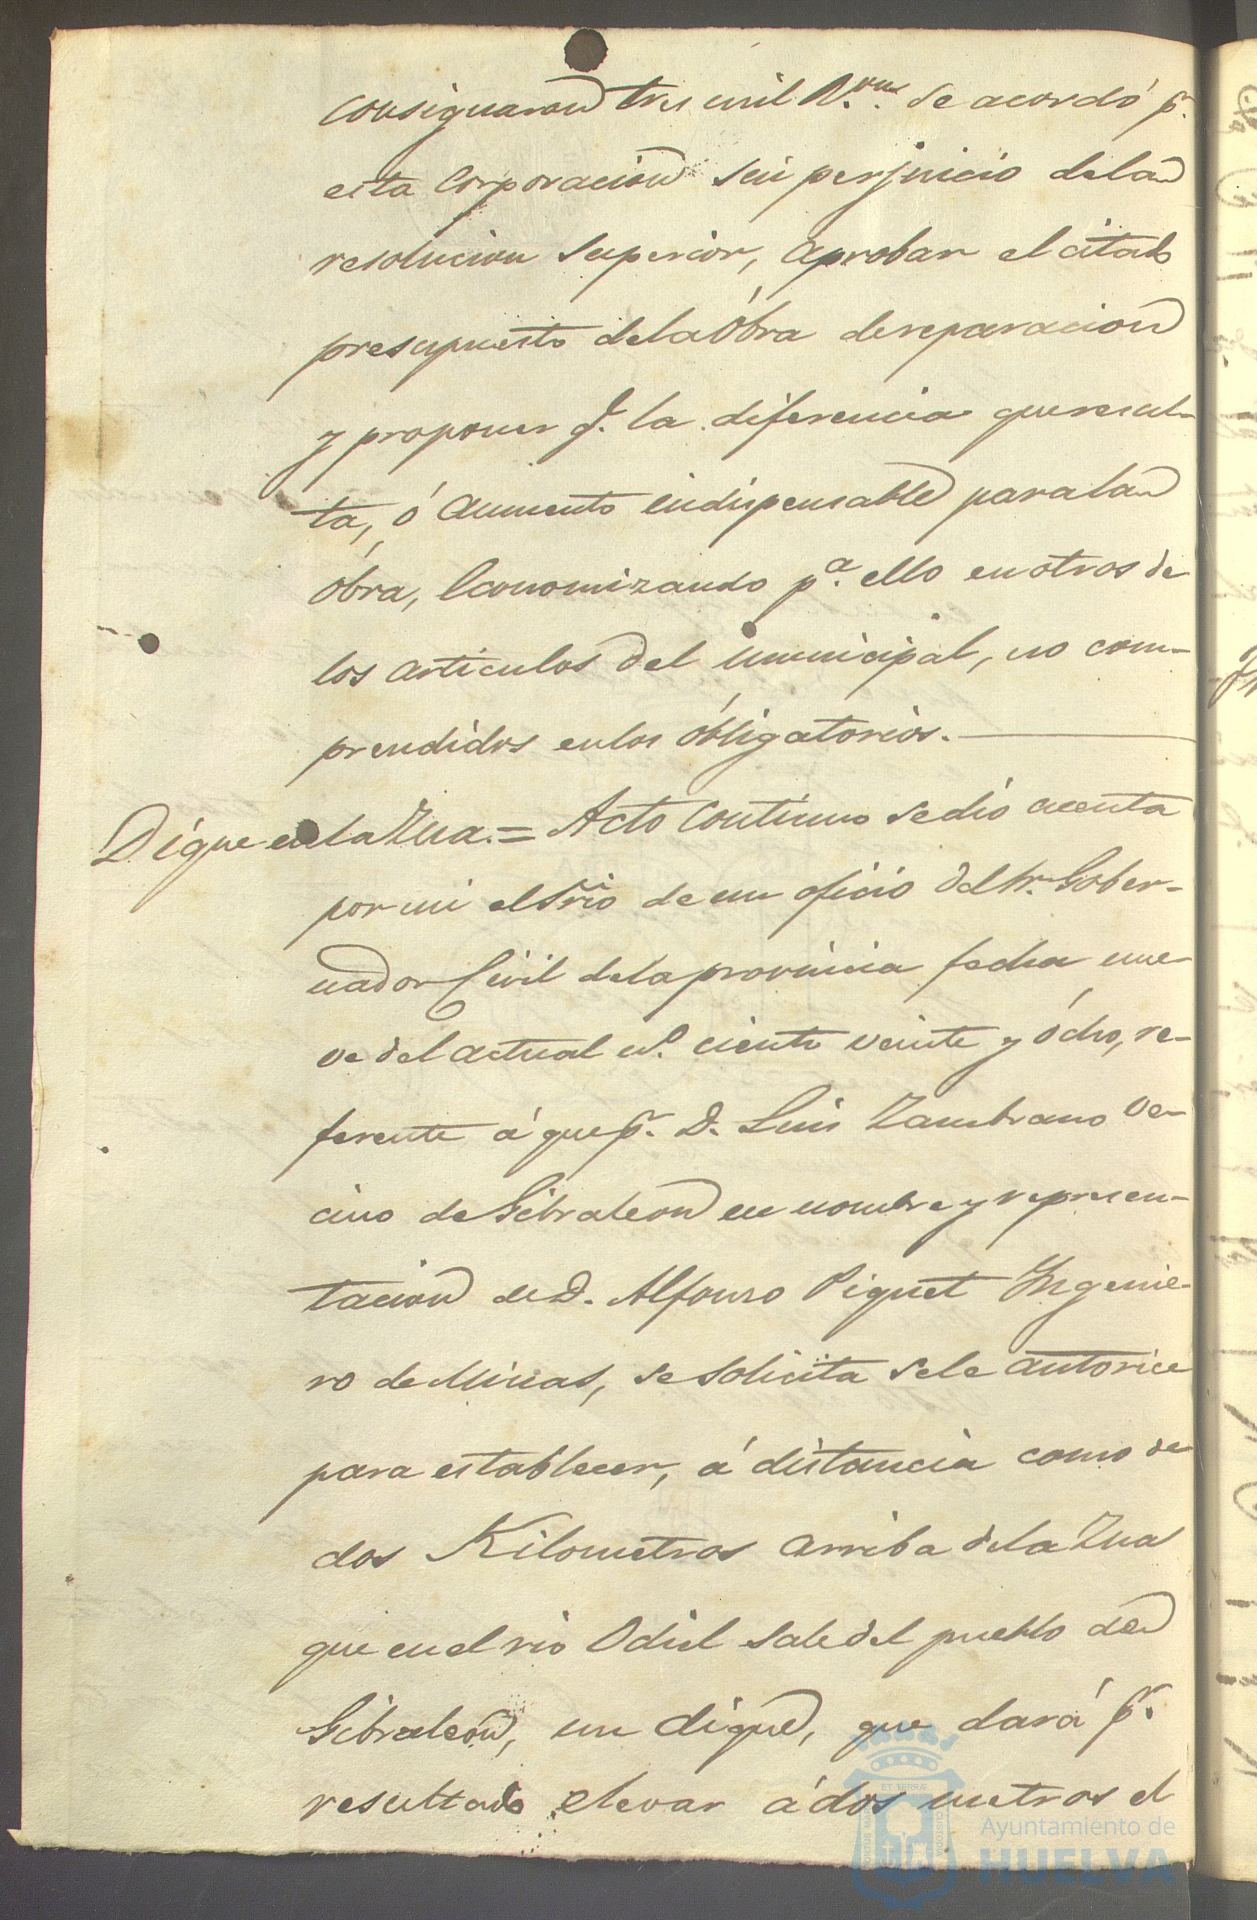 consignaron tres mil R.ˢ vⁿ. se acordó pʳ.
esta corporacion sin perjuicio dela
resolucion superior, aprobar el citado
presupuesto dela óbra dereparacion
y proponer pʳ. la diferencia queresul-
ta, ó aumento indispensable parala
óbra, economizando pᵃ. ello enotros de
los articulos del municipal, no com-
prendidos enlos óbligatorios.
Dique enla Zua. = Acto contínuo sedió cuenta
por mi elSrio de un oficio del Sr. Gober-
nador Civil dela provincia fecha nue-
ve del actual nº. ciento veinte y ócho, re-
ferente á que pʳ. D. Luis Zambrano ve-
cino de Gibraleon en nombre y represen-
tacion de D. Alfonso Piquet Ingenie-
ro de Minas, se solicita sele autorice
para establecer, á distancia como de
dos Kilometros arriba dela Zua
que enel rio Odiel sale del pueblo de
Gibraleon, un dique, que dará pʳ.
resultado elevar ádos metros el
Ayuntamiento de
HUELVA